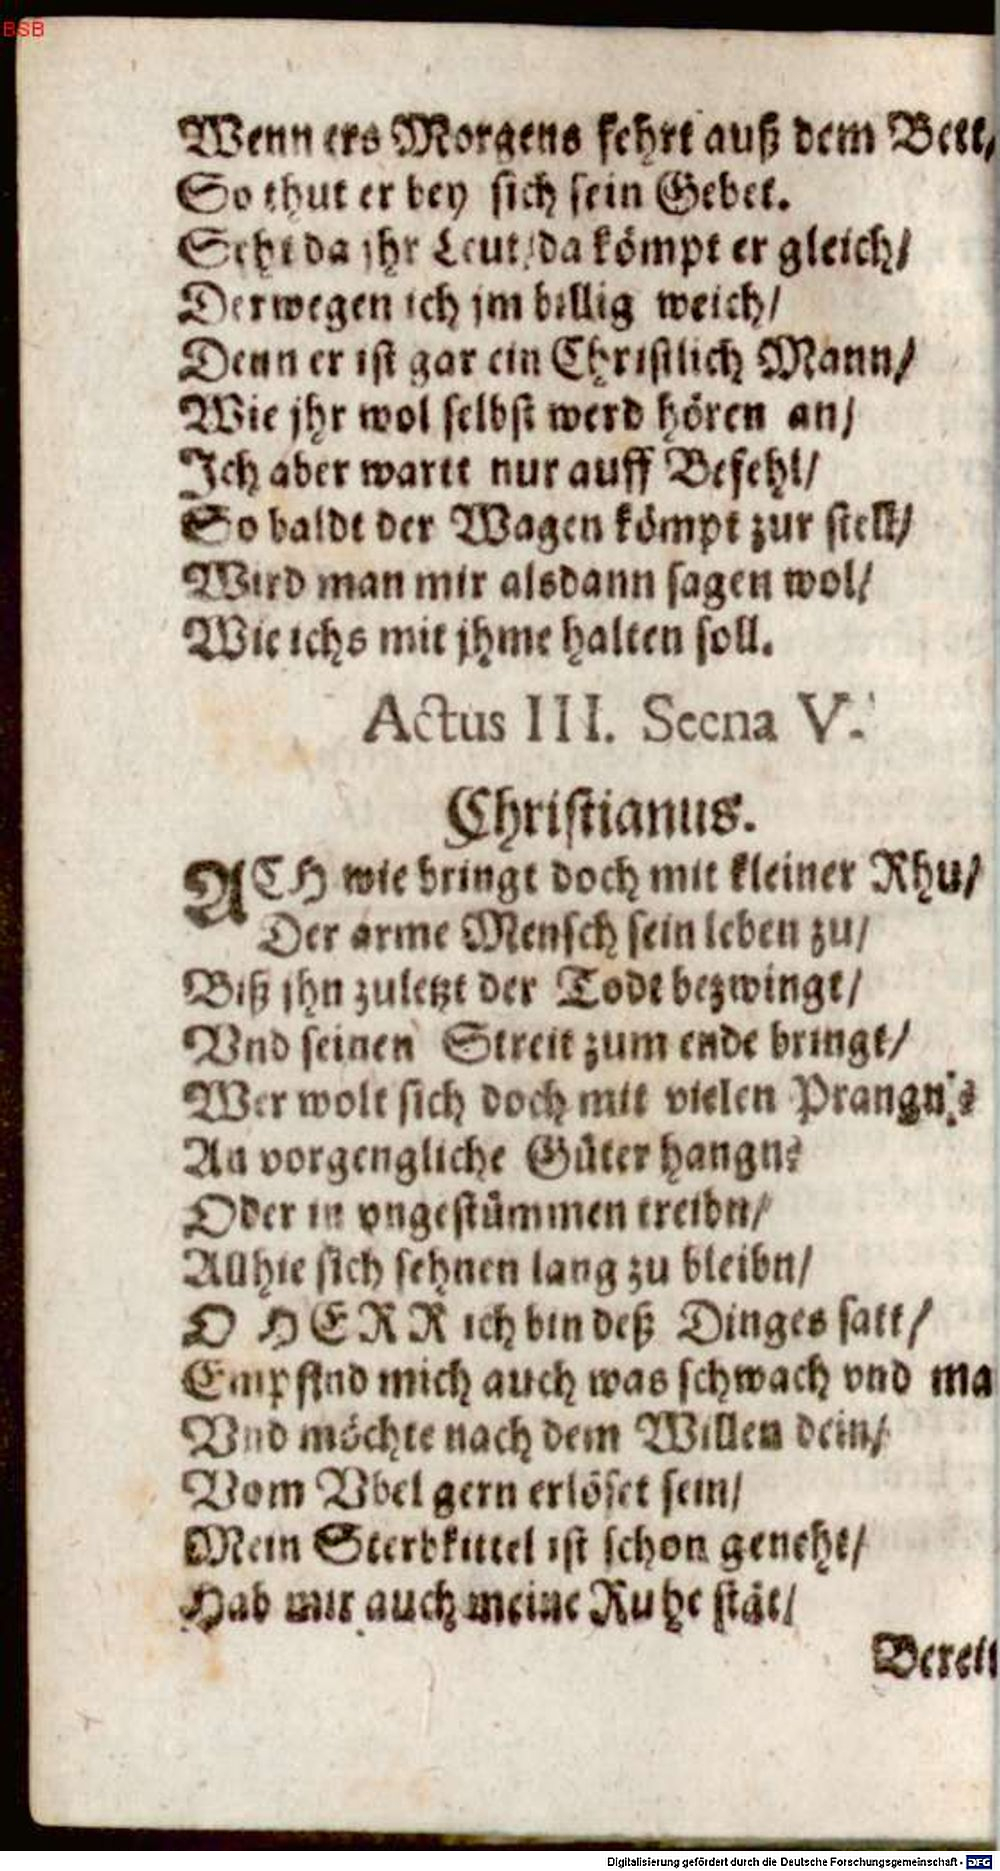 BSB
Wenn ers Morgens fehrt auß dem Bett,
So thut er bey sich sein Gebet.
Seht da jhr Leut/ da kömpt er gleich/
Derwegen ich jm billig weich/
Denn er ist gar ein Christlich Mann/
Wie jhr wol selbst werd hören an/
Ich aber wartt nur auff Befehl/
So baldt der Wagen kömpt zur stell/
Wird man mir alsdann sagen wol/
Wie ichs mit jhme halten soll.
Actus III. Scena V.
Christianus.
ACH wie bringt doch mit kleiner Rhu/
Der arme Mensch sein leben zu/
Biß jhn zuletzt der Todt bezwingt/
Vnd seinen Streit zum ende bringt/
Wer wolt sich doch mit vielen Prangn?
An vorgengliche Güter hangn?
Oder in vngestümmen treibn/
Allhie sich sehnen lang zu bleibn/
O HERR ich bin deß Dinges satt/
Empfind mich auch was schwach vnd ma
Vnd möchte nach dem Willen dein/
Vom Vbel gern erlöset sein/
Mein Sterbkittel ist schon geneht/
Hab mir auch meine Ruhe stät/
Bereit
Digitalisierung gefördert durch die Deutsche Forschungsgemeinschaft - DFG